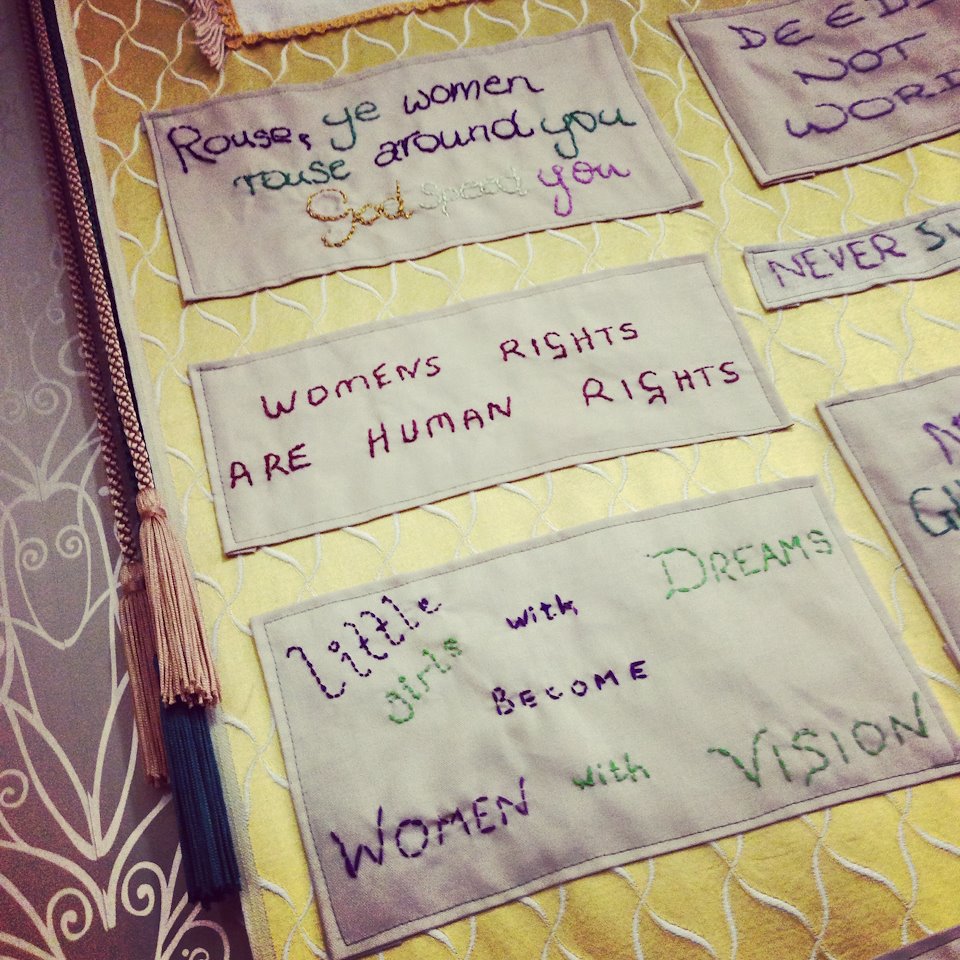 Rouse, ye women
rouse around you
God speed you
DEEDS
NOT
WORDS
NEVER
WOMENS RIGHTS
ARE HUMAN RIGHTS
Little
girls with DREAMS
BECOME
WOMEN with VISION